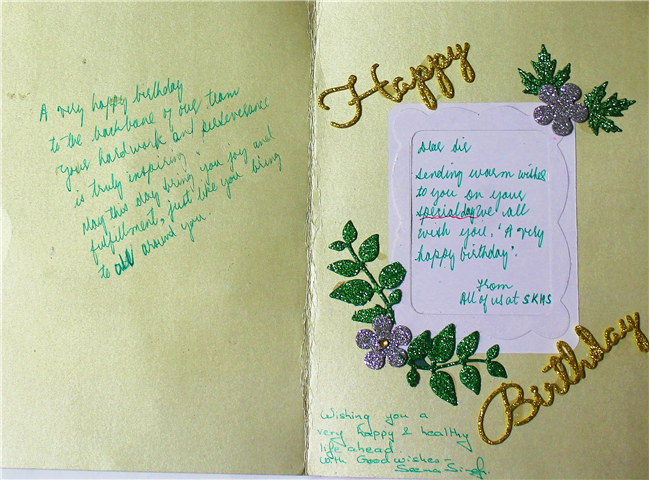 A very happy birthday
to the backbone of our team
Your hardwork and perseverance
is truly inspiring.
May this day bring you joy and
fulfillment, just like you bring
to all around you
Happy
Dear Sir
Sending warm wishes
to you on your
special day we all
wish you, "A very
happy birthday".
From
All of us at SKHS
Birthday
Wishing you a
very happy & healthy
life ahead.
With Good wishes –
Seema Singh.